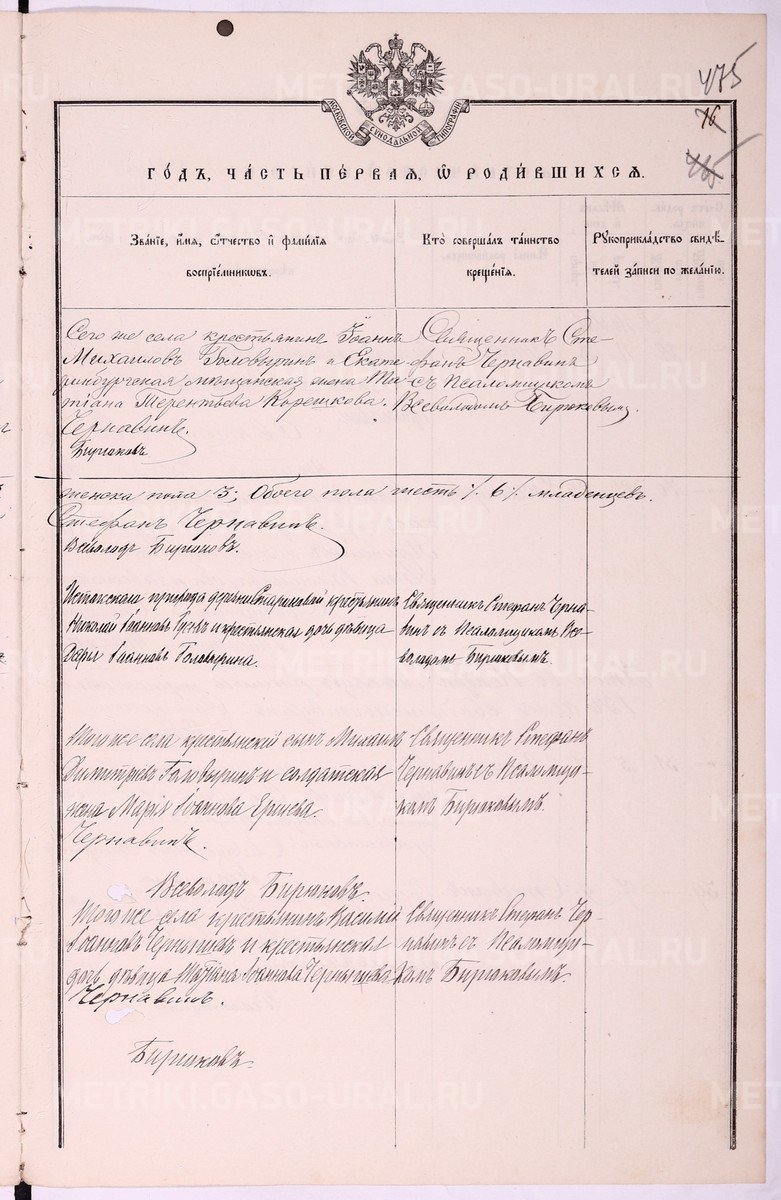 475
16
445
МОСКОВСКОЙ СѴНОДАЛЬНОЙ ТИПОГРАФІИ
ГО́ДЪ, ЧА́СТЬ ПЕ́РВАЯ, Ѿ РОДИ́ВШИХСЯ.
Зва́ніе, и҆́мя, ѻ҆́тчество и҆ фами́лія воспріе́мниковъ.
Кто̀ соверша́лъ та́инство креще́нія.
Рꙋкоприкла́дство свидѣ́телей за́писи по жела́нію.
Сего же села крестьянинъ Іоаннъ
Михаиловъ Головыринъ и Екате
ринбургская мѣщанская жена Та
тіана Терентьева Корешкова.
Чернавинъ.
Бирюковъ
Священникъ Сте
фанъ Чернавинъ
съ псаломщикомъ
Всеволодомъ Бирюковымъ.
женска пола 3; Обоего пола шесть /. 6 /. младенцевъ.
Стефанъ Чернавинъ.
Всеволодъ Бирюковъ.
прихода деревни крестьянинъ
Николай Іоанновъ и крестьянская дочь дѣвица
Дарья Іоаннова Головырина.
Священникъ Стефанъ Черна-
винъ съ Псаломщикомъ Все-
володомъ Бирюковымъ.
Того же села крестьянскій сынъ Михаилъ
Димитріевъ Головыринъ и солдатская
жена Марія Іоаннова Ершева.
Чернавинъ.
Священникъ Стефанъ
Чернавинъ съ Псаломщи-
комъ Бирюковымъ.
Всеволодъ Бирюковъ.
Того же села крестьянинъ Василій
Іоанновъ Чернышевъ и крестьянская
дочь дѣвица Іоаннова Чернышева
Чернавинъ.
Священникъ Стефанъ Чер-
навинъ съ Псаломщи-
комъ Бирюковымъ
Бирюковъ.
METRIKI.GASO-URAL.RU